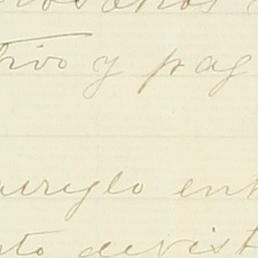 tivo y pag
arreglo ent
nto de vist